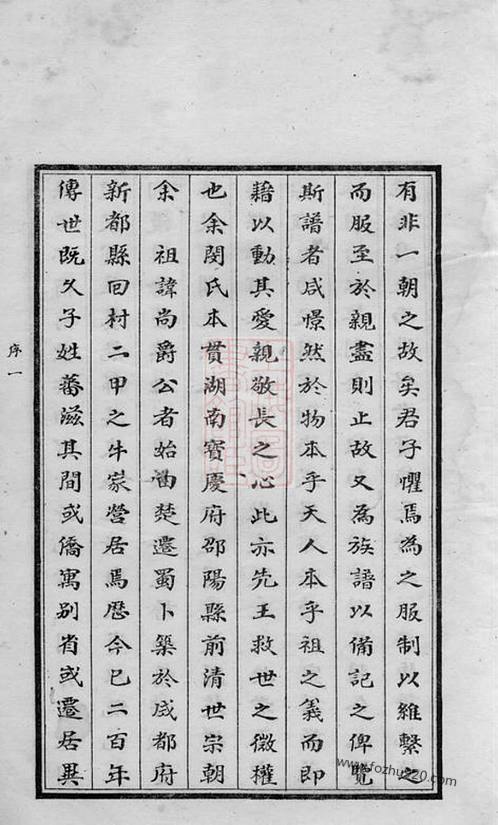 有非一朝之故矣君子懼焉為之服制以維繫之
而服至於親盡則止故又為族譜以備記之俾覽
斯譜者咸憬然於物本乎天人本乎祖之義而即
藉以動其愛親敬長之心此亦先王救世之微權
也余閔氏本貫湖南寶慶府邵陽縣前清世宗朝
余 祖諱尚爵公者始由楚遷蜀卜築於成都府
新都縣回村二甲之牛家營居焉歷今已二百年
傳世既久子姓蕃滋其間或僑寓別省或遷居異
序一
www.fozhu920.com